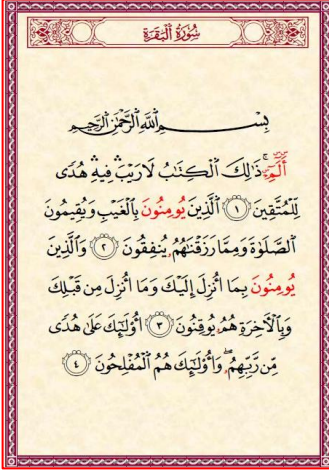 سُورَةُ ٱلْبَقَرَةِ
بِسْمِ ٱللَّهِ ٱلرَّحْمَٰنِ ٱلرَّحِيمِ
أَلَٓمِّٓۚ ذَٰلِكَ ٱلْكِتَٰبُ لَا رَيْبَۛ فِيهِۛ هُدًى
لِّلْمُتَّقِينَ ١ ٱلَّذِينَ يُومِنُونَ بِالْغَيْبِ وَيُقِيمُونَ
ٱلصَّلَوٰةَ وَمِمَّا رَزَقْنَٰهُمُۥ يُنفِقُونَ ٢ وَٱلَّذِينَ
يُومِنُونَ بِمَا أُنزِلَ إِلَيْكَ وَمَا أُنزِلَ مِن قَبْلِكَ
وَبِالْأَخِرَةِ هُمُۥ يُوقِنُونَ ٣ أُوْلَٰٓئِكَ عَلَىٰ هُدًى
مِّن رَّبِّهِمُۥۖ وَأُوْلَٰٓئِكَ هُمُ ٱلْمُفْلِحُونَ ٤